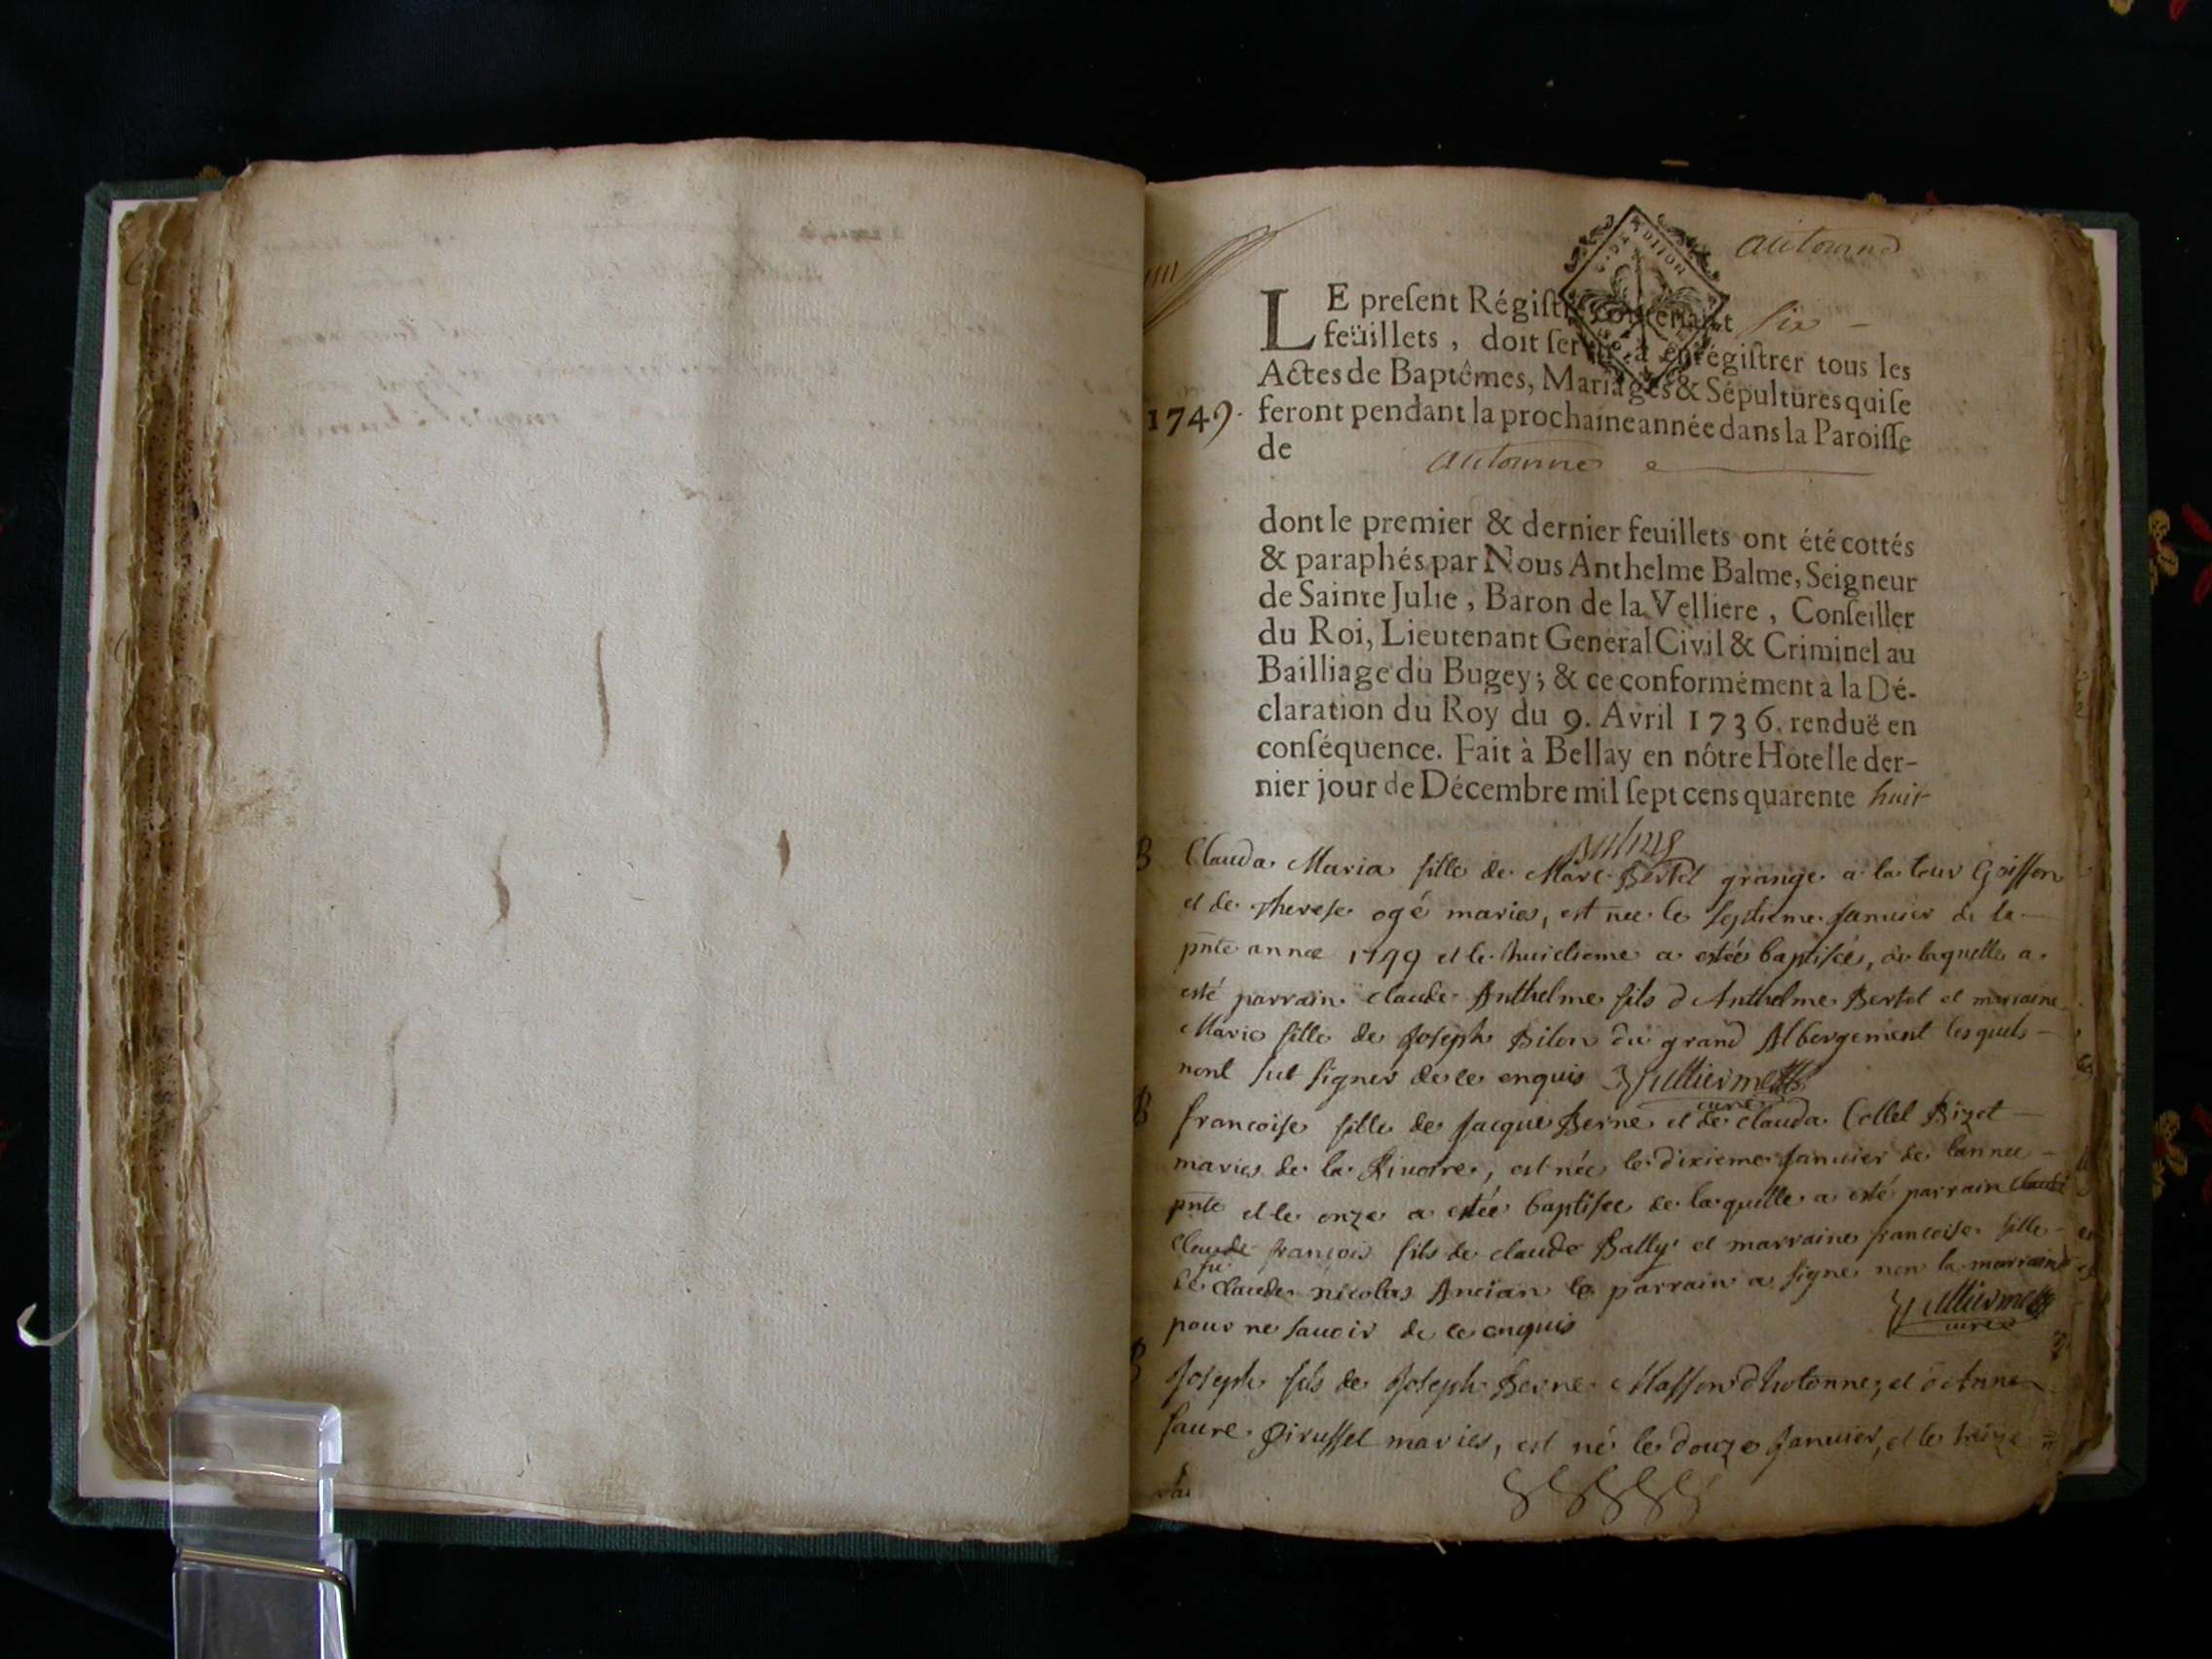 autonne
LE preſent Régiſtre contenant ſix
feüillets, doit ſervir à enrégiſtrer tous les
Actes de Baptêmes, Mariages & Sépultures qui ſe
1749. feront pendant la prochaine année dans la Paroiſſe
de autonne
dont le premier & dernier feuillets ont été cottés
& paraphés par Nous Anthelme Balme, Seigneur
de Sainte Julie, Baron de la Velliere, Conſeiller
du Roi, Lieutenant General Civil & Criminel au
Bailliage du Bugey; & ce conformément à la Dé-
claration du Roy du 9. Avril 1736. renduë en
conſéquence. Fait à Bellay en nôtre Hôtel le der-
nier jour de Décembre mil ſept cens quarente huit
B Clauda Maria fille de Marc Bertet grange a la tour Goiffon
et de therese ogé maries, est née le septieme Januier de la
pnte année 1749 et le huictieme a estée baptisée, de laquelle a
esté parrain claude Anthelme fils d Anthelme Bertet et marraine
Marie fille de Joseph Bilon du grand Albergement lesquels
nont sut signer de ce enquis Jullierme
curé
B francoise fille de Jacque Berne et de clauda Collet Bizet
maries de la Riuoire, est née le dixieme Januier de lannee
pnte et le onze a estée baptisée de laquelle a esté parrain claude
claude francois fils de claude Bally et marraine francoise fille
fu
de claude nicolas Ancian le parrain a signé non la marraine
pour ne sauoir de ce enquis Jullierme
curé
B Joseph fils de Joseph Berne Masson dhotonne, et d Anne
faure Pirussel maries, est né le douze Januier, et le treize